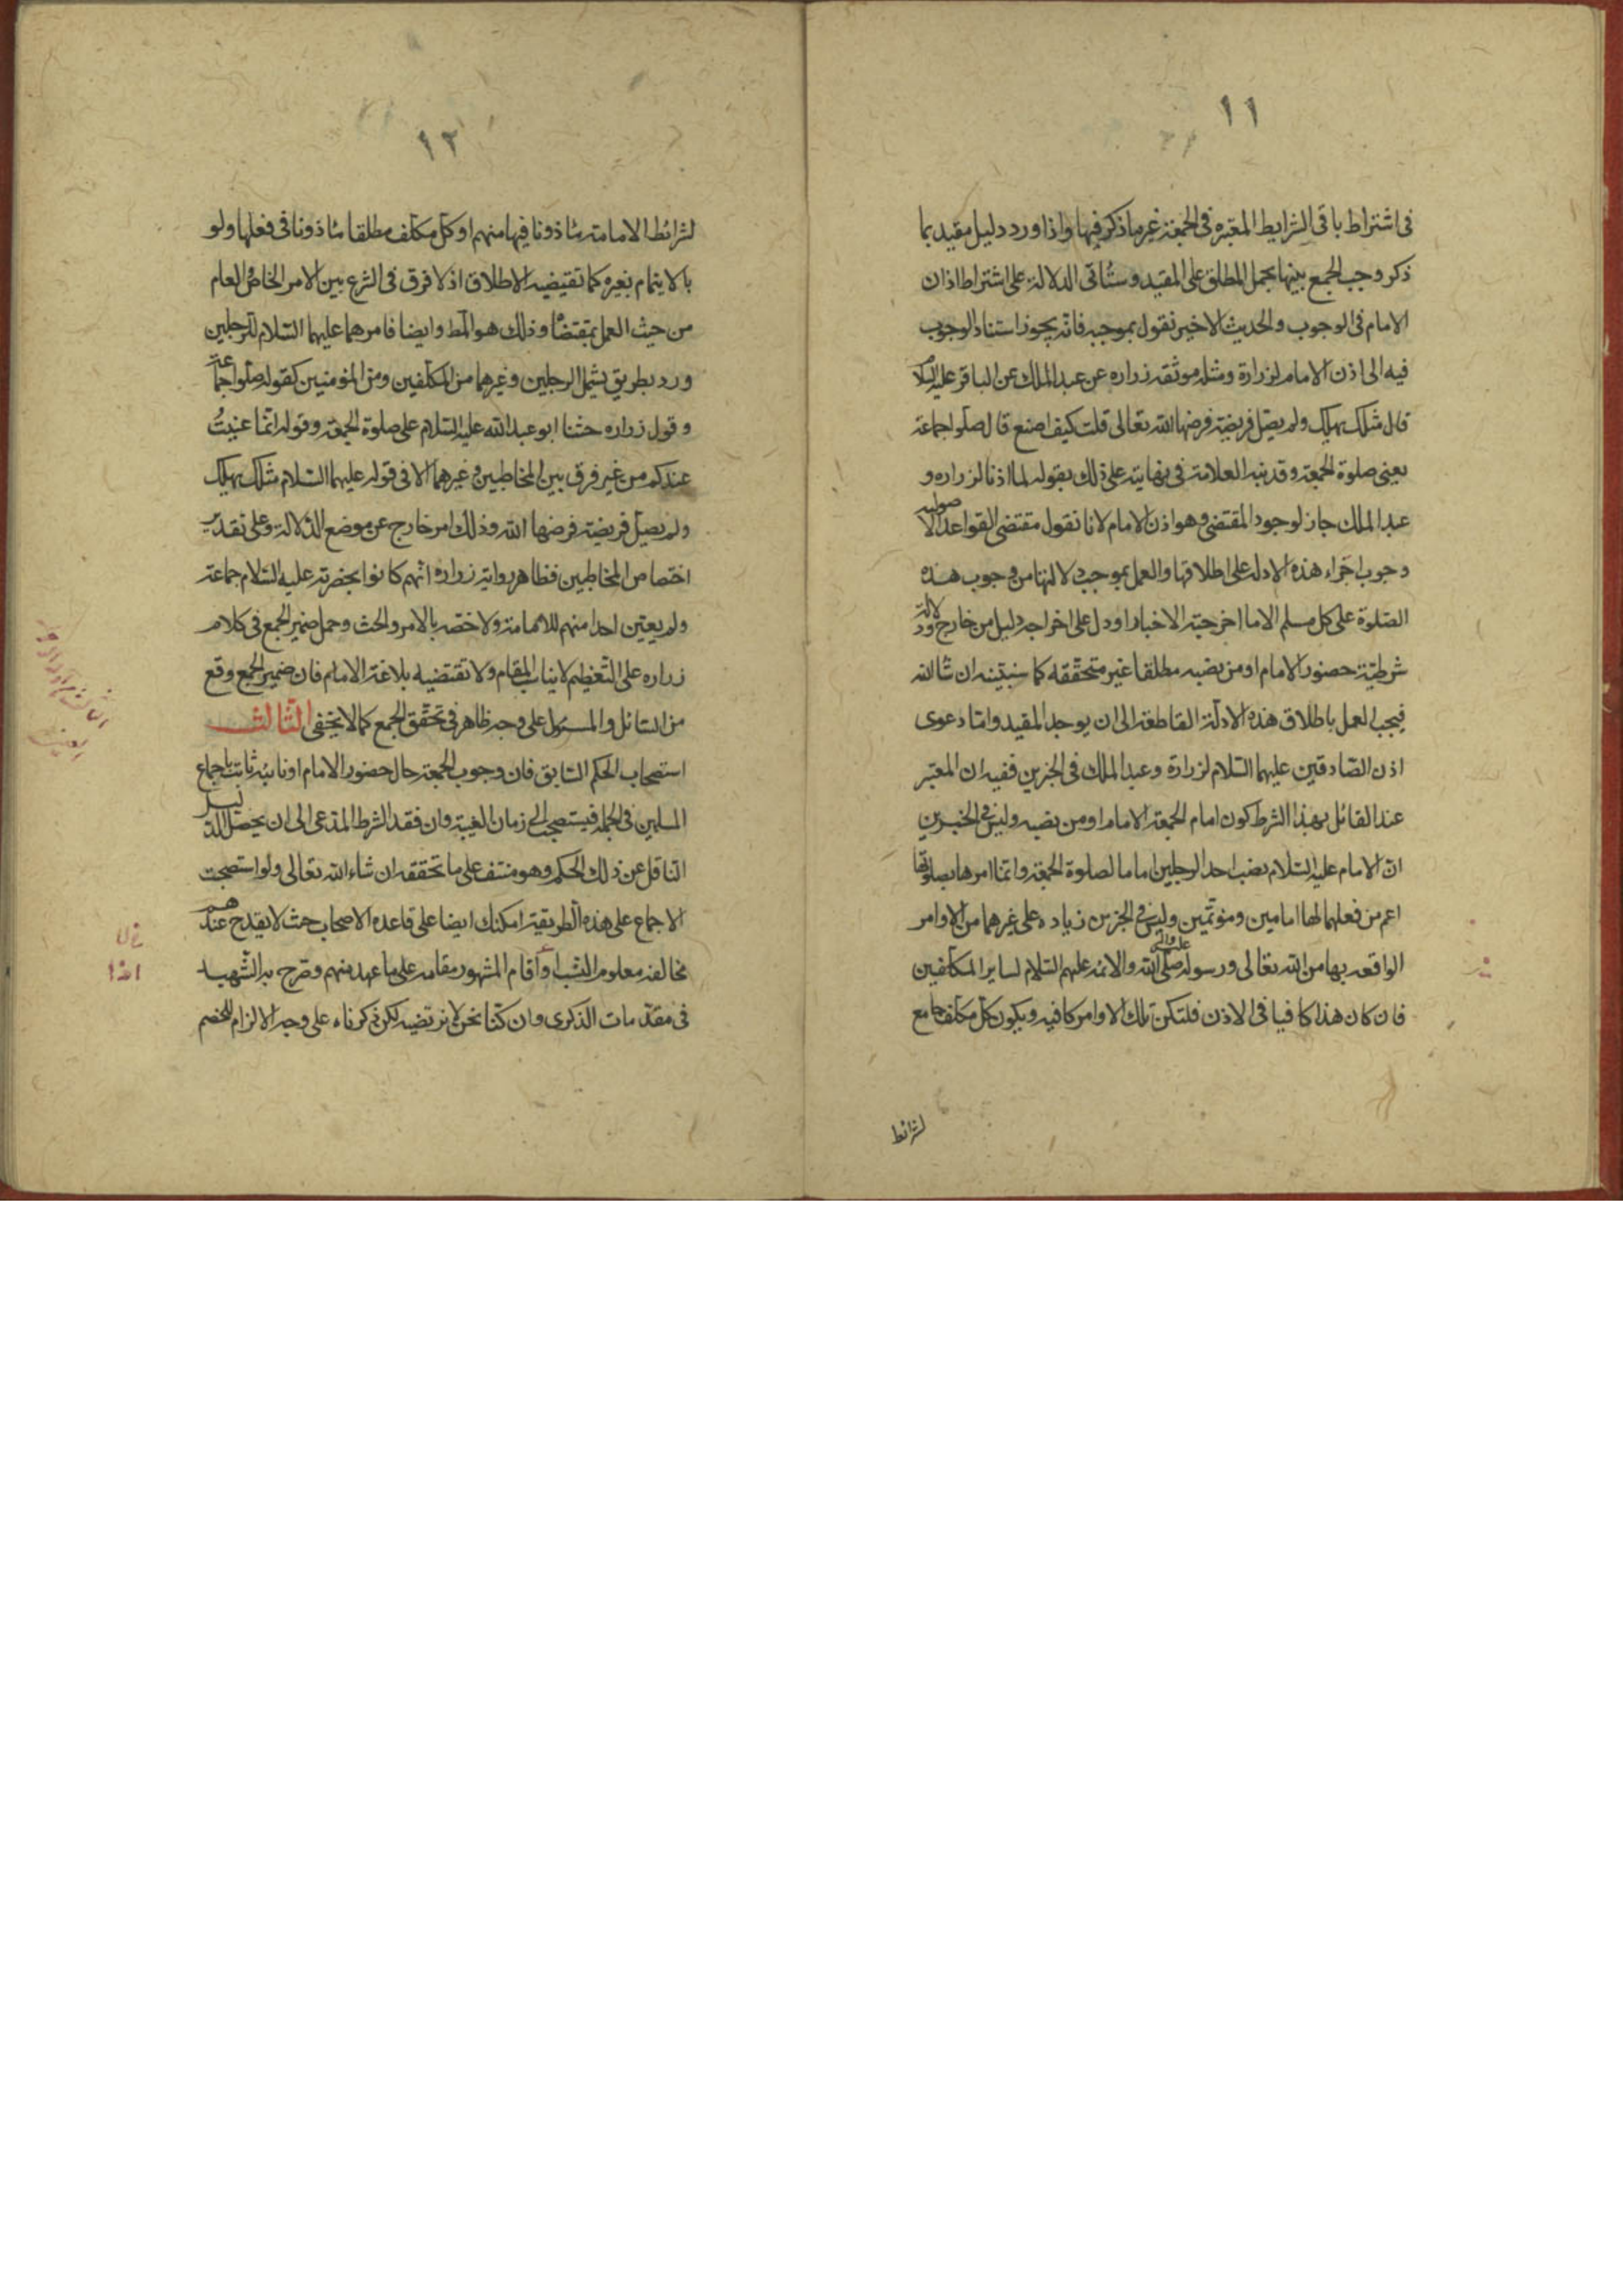 ١١
فى اشتراط باقى الشرايط المعتبره فى الجمعة غير ما ذكر فيها واذا ورد دليل مقيد بما
ذكر وجب الجمع بينها بحمل المطلق على المقيد وستأتى الدلالة على اشتراط اذن
الامام فى الوجوب والحديث الاخير نقول بموجبه فانه يجوز استناد الوجوب
فيه الى اذن الامام لزرارة ومثله موثقه زراره عن عبد الملك عن الباقر عليه السلام
قال مثلك يهلك ولم يصل فريضة فرضها الله تعالى قلت كيف اصنع قال صلوا جماعة
يعنى صلوة الجمعة وقد نبه العلامة فى نهايته على ذلك بقوله لما اذنا لزراره و
عبد الملك جاز لوجود المقتضى وهو اذن الامام لانا نقول مقتضى القواعد الاصوليه
وجوب اجراء هذه الادله على اطلاقها والعمل بموجب دلالتها من وجوب هذه
الصلوة على كل مسلم الا ما اخرجته الاخبار او دل على اخراجه دليل من خارج ودلالة
شرطية حضور الامام او من نصبه مطلقا غير متحققه كما سنبينه ان شا الله
فيجب العمل باطلاق هذه الادلة القاطعة الى ان يوجد المقيد واما دعوى
اذن الصادقين عليهما السلام لزرارة وعبد الملك فى الخبرين ففيه ان المعتبر
عند القائل بهذا الشرط كون امام الجمعة الامام او من نصبه وليس فى الخبرين
ان الامام عليه السلام نصب احد الرجلين اماما لصلوة الجمعة وانما امرهما بصلوتها
اعم من فعلهما لها امامين ومؤتمين وليس فى الخبرين زياده على غيرهما من الاوامر
الواقعه بها من الله تعالى ورسوله صلى الله عليه وآله والائمه عليهم السلام لساير المكلفين
فان كان هذا كافيا فى الاذن فلتكن تلك الاوامر كافيه ويكون كل مكلف جامع
لشرائط
١٢
لشرائط الامامة مأذونا فيها منهم او كل مكلف مطلقا مأذونا فى فعلها ولو
بالايتمام بغيره كما تقيضيه الاطلاق اذ لا فرق فى الشرع بين الامر الخاص والعام
من حيث العمل بمقتضاه وذلك هو المط وايضا فامرهما عليهما السلام للرجلين
ورد بطريق يشمل الرجلين وغيرهما من المكلفين ومن المؤمنين كقوله صلوا جماعة
وقول زراره حثنا ابو عبد الله عليه السلام على صلوة الجمعه وقوله انما عنيتُ
عندكم من غير فرق بين المخاطبين وغيرهما الا فى قوله عليهما السلام مثلك يهلك
ولم يصل فريضة فرضها الله وذلك امر خارج عن موضع الدلالة وعلى تقدير
اختصاص المخاطبين فظاهر رواية زراره انهم كانوا بحضرته عليه السلام جماعة
ولم يعين احدا منهم للامامة ولا خصه بالامر والحث وحمل ضمير الجمع فى كلام
زراره على التعظيم لا يناسب المقام ولا تقتضيه بلاغة الامام فان ضمير الجمع وقع
من السائل والمسئول على وجه ظاهر فى تحقق الجمع كما لا يخفى الثالث
استصحاب الحكم السابق فان وجوب الجمعة حال حضور الامام او نائبه ثابت باجماع
المسلمين فى الجمله فيستصحب الى زمان الغيبة وان فقد الشرط المدعى الى ان يحصل الدليل
الناقل عن ذلك الحكم وهو منتف على ما تحققه ان شاء الله تعالى ولو استصحبت
الاجماع على هذه الطريقة امكنك ايضا على قاعده الاصحاب حيث لا يقدح عندهم
مخالفة معلوم النسب او اقام المشهور مقامه على ما عهد منهم وصرح به الشهيد
فى مقدمات الذكرى وان كنا نحن لا نرتضيه لكن ذكرناه على وجه الالزام للخصم